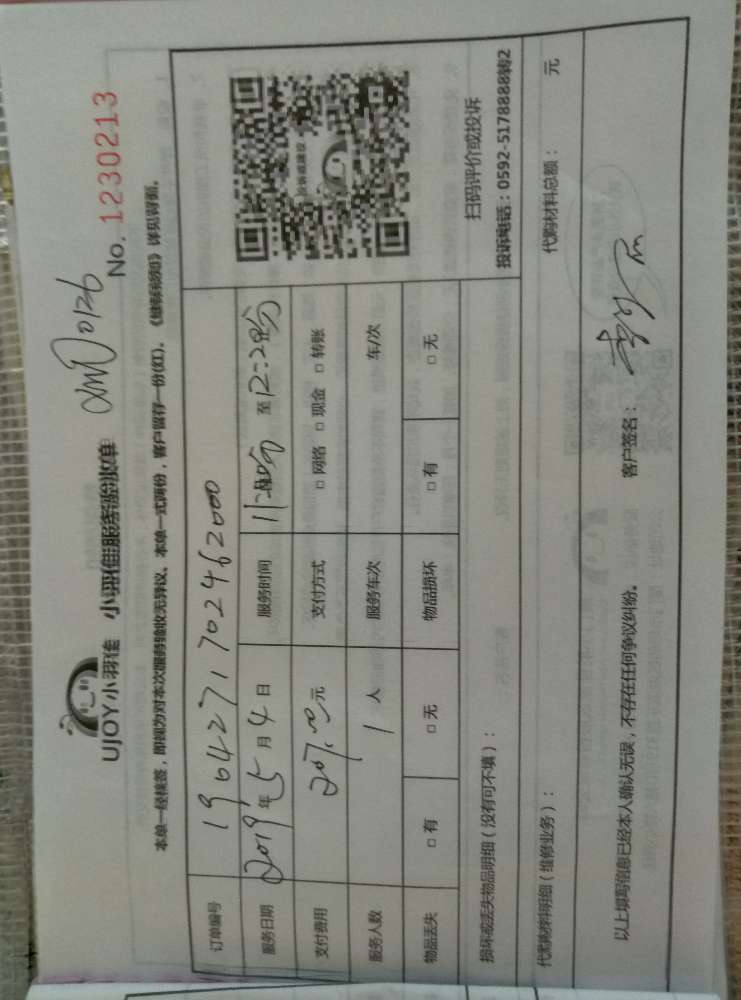 UJOY小羽佳 小羽佳服务验收单
No. 1230213
本单一经核签，即视为对本次服务验收无异议。本单一式两份，客户留存一份(红)。《健康须知》详见背面。
订单编号 1904271702462000
服务日期 2019年5月4日 服务时间 至
支付费用 元 支付方式 □ 网络 □ 现金 □ 转账
服务人数 1 人 服务车次 车/次
物品丢失 □ 有 □ 无 物品损坏 □ 有 □ 无
扫码评价或投诉
投诉电话：0592-5178888转2
损坏或丢失物品明细（没有可不填）：
代购材料明细（维修业务）： 代购材料总额： 元
以上填写信息已经本人确认无误，不存在任何争议纠纷。 客户签名：